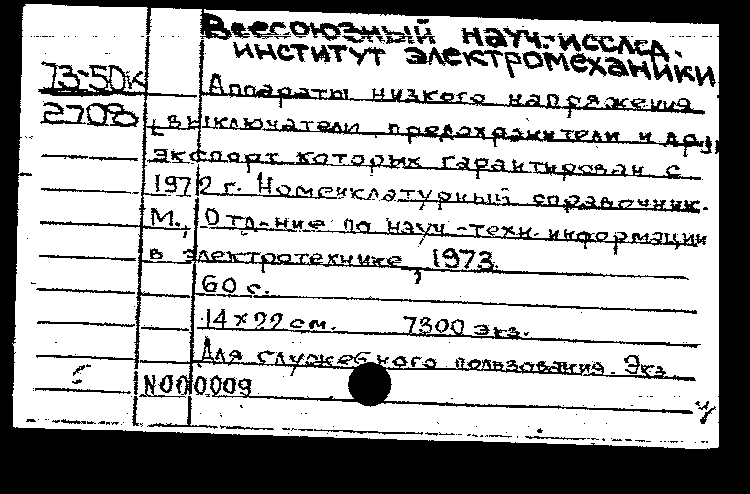 Всесоюзный науч.-исслед.
институт электромеханики
73-50к Аппараты низкого напряжения
2708 (выключатели, предохранители и др.),
экспорт которых гарантирован с
1972 г. Номенклатурный справочник.
М., Отд-ние по науч.-техн. информации
в электротехнике, 1973.
60 с.
14×22 см. 7300 экз.
Для служебного пользования. Экз.
N000009